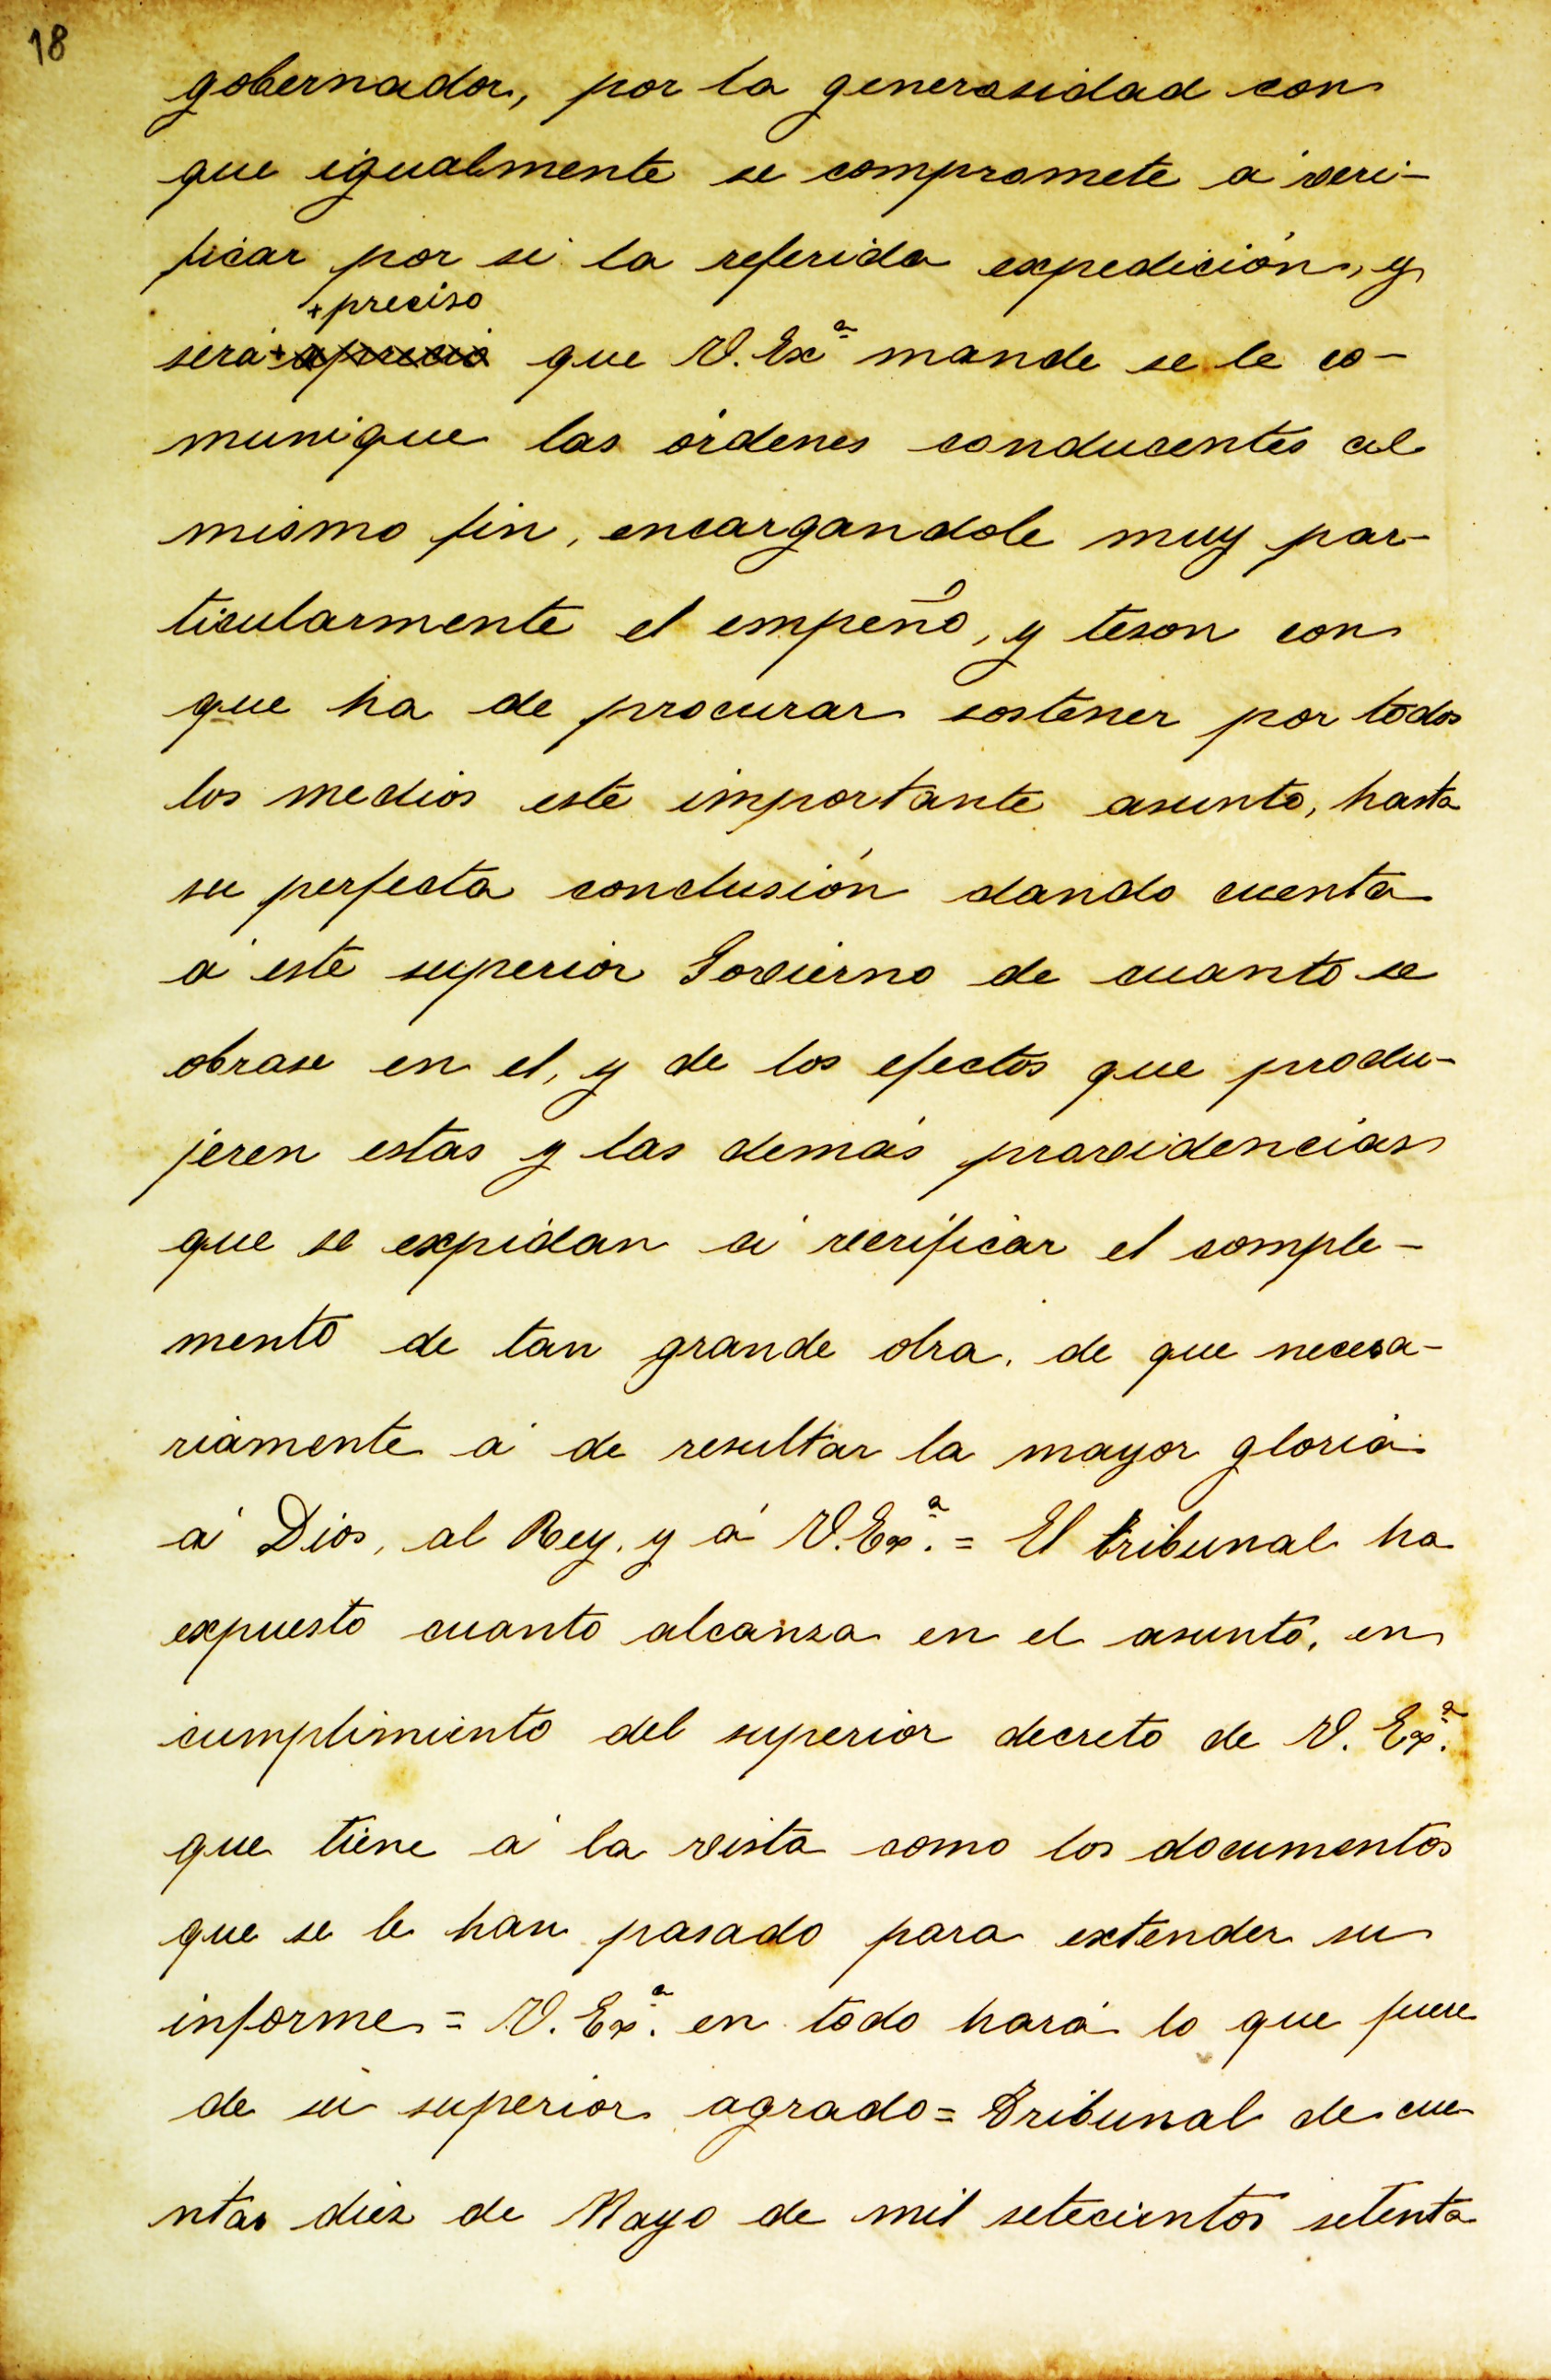 18
gobernador, por la generosidad con
que igualmente se compromete á veri-
ficar por si la referida expedición, y
+ preciso
será + que V. Exª mande se le co-
munique las órdenes conducentes al
mismo fin, encargandole muy par-
ticularmente el empeño, y teson con
que ha de procurar sostener por todos
los medios este importante asunto, hasta
su perfecta conclusión dando cuenta
á este superior Govierno de cuanto se
obrase en el, y de los efectos que produ-
jeren estas y las demás providencias
que se expidan á verificar el comple-
mento de tan grande obra, de que necesa-
riamente á de resultar la mayor gloria
á Dios, al Rey, y á V. Exª. = El tribunal ha
expuesto cuanto alcanza en el asunto, en
cumplimiento del superior decreto de V. Exª.
que tiene á la vista como los documentos
que se le han pasado para extender su
informe = V. Exª. en todo hará lo que fuere
de su superior agrado = Tribunal de cue-
ntas diez de Mayo de mil setecientos setenta